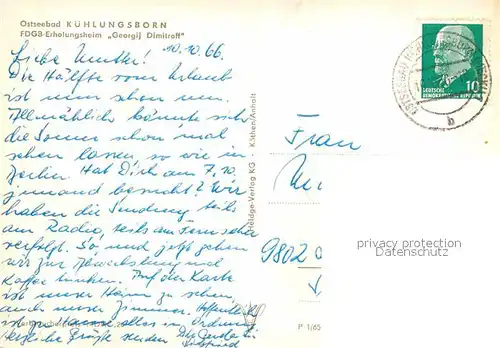 Ostseebad KÜHLUNGSBORN
FDGB-Erholungsheim „Georgij Dimitroff"
10.10.66.
Liebe Mutter!
Die Hälfte vom Urlaub
ist nun schon um.
Allmählich könnte sich
die Sonne schon mal
sehen lassen, so wie in
Berlin. Hat Dich am 7.10.
jemand besucht? Wir
haben die Sendung teils
am Radio, teils am Fernseher
verfolgt. So und jetzt gehen
wir zur Abwechslung mal
Kaffee trinken. Auf der Karte
ist unser Heim zu sehen,
auch unser Zimmer. Hoffentlich
ist zu Hause alles in Ordnung.
Herzliche Grüße senden Dir Gerda u.
Siegfried
Verlag KG · Köthen/Anhalt
P 1/65
DEUTSCHE
DEMOKRATISCHE
10
b
Frau
9802
privacy protection
VEDAMCARDS